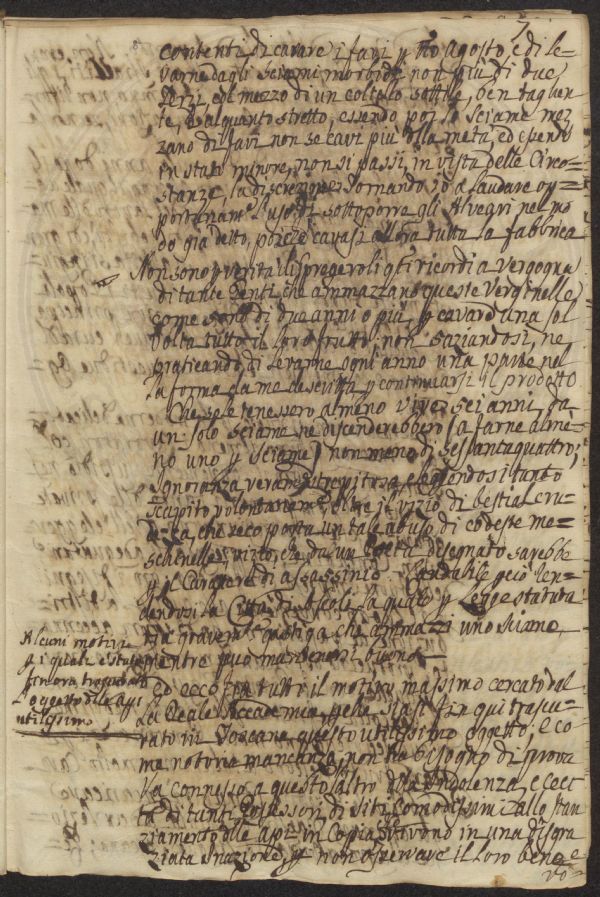 7
contenti di cavare i favi p tto Agosto, e di le=
varne dagli Sciami morbidi non più di due
terzi, col mezzo di un coltello sottile, ben taglien=
te, e alquanto stretto, essendo poi lo Sciame mez=
zano di favi non se cavi più della metà, ed essendo
in stato minore, non si passi, in vista delle Circo=
stanze, la discrezione; tornando io a laudare op=
portunam.e l'uso di sottoporre gli Alvegri nel mo
do già detto, poiche cavasi allora tutta la fabbrica
Non sono p verità dispregevoli q.ti ricordi a vergogna
di tante Genti, che ammazzano queste Verginelle
come sono di due anni o più, p cavard una sol
volta tutto il loro frutto, non saziandosi, ne
praticando di levarne ogni anno una parte nel
la forma da me descritta p continuarsi il prodotto
Che se le tenessero almeno vive sei anni, da
un solo sciame ne discenderebbero (a farne alme=
no uno p sciame) non meno di sessantaquattro;
Ignoranza veram.te strepitosa eleggendosi tanto
scapito volontariam.e oltre il vizio di bestial cru=
deltà, che seco porta un tale abuso di codeste me=
schinelle, vizio, che da un Poeta disegnato sarebbe
p il Carattere di assassinio. Laudabile però ren=
dendosi la Città di Ascoli, la quale p Legge statuta
ria gravem.e gastiga chi ammazzi uno Sciame,
mentre può mantenersi buono.
Alcuni motivi
p i quali è stato
finora trascurato
l'oggetto delle Api
utilissimo
Ed ecco fra tutti il motivo massimo cercato dal
la Reale Accademia, perche siasi fin qui trascu=
rato in Toscana questo utilissimo oggetto, e co
me notoria mancanza, non ha bisogno di prova
Va connesso a questo l'altro della Indolenza, e ceci
tà di tanti Possessori di siti comodissimi allo stan
ziamento delle Api in Copia, vivendo in una disgra
ziata Inazione, p non osservare il loro bene=
vo=